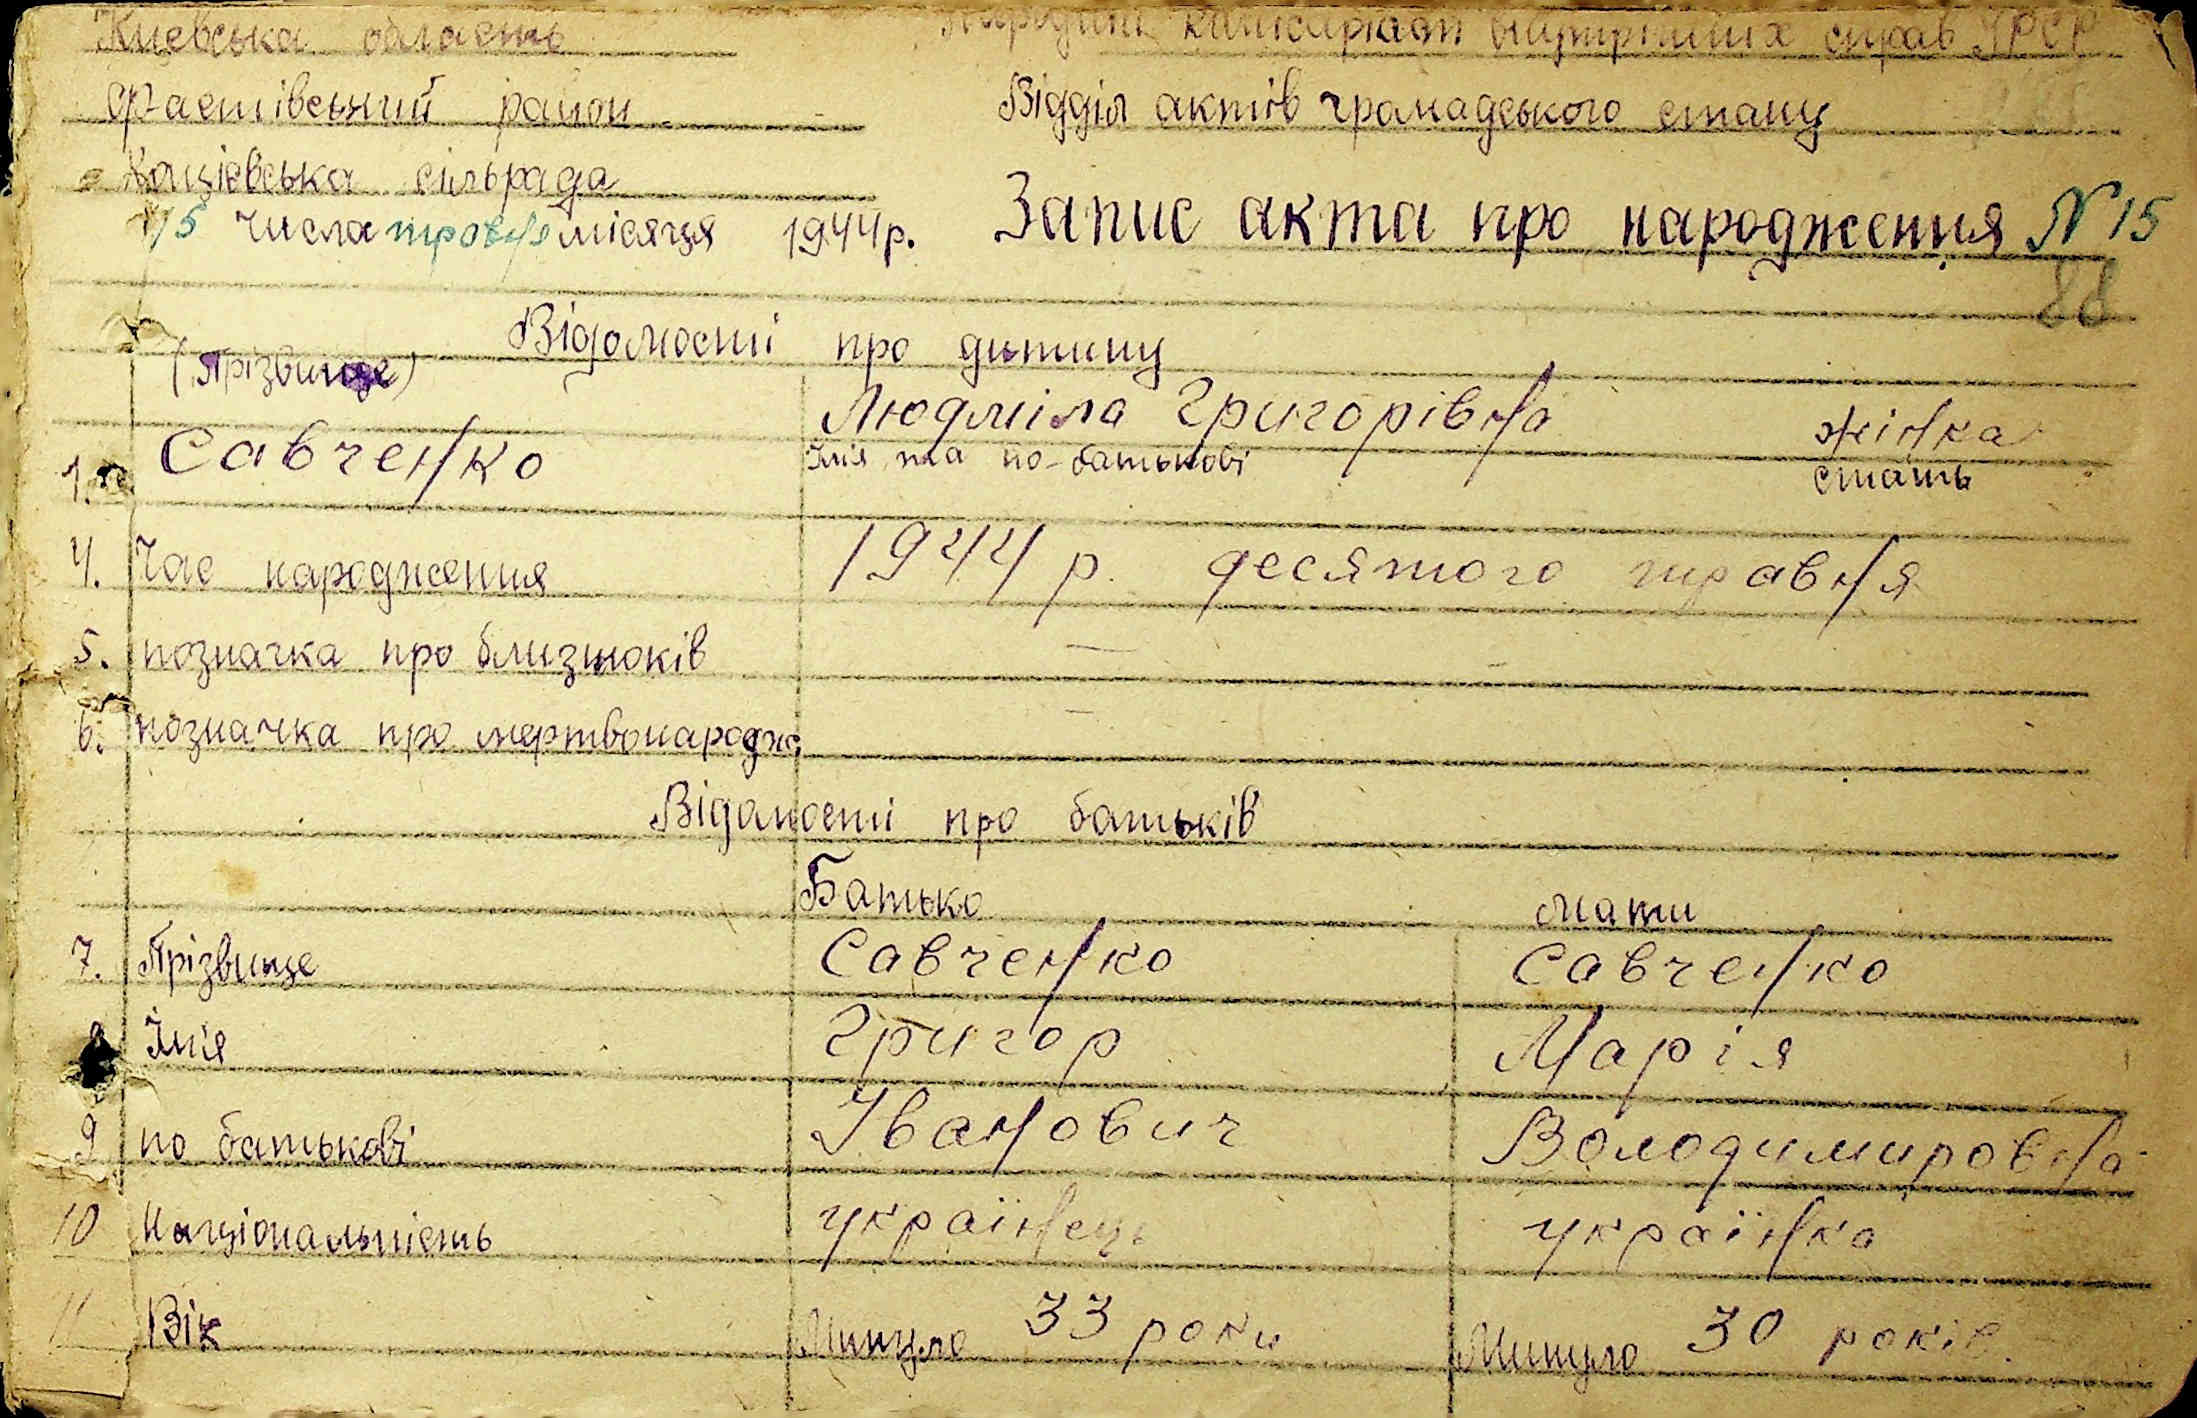 Київська область
Народний комісаріат внутрішніх справ УРСР
Фастівський район
Відділ актів громадського стану
сільрада
15 числа травня місяця 1944 р.
Запис акта про народження N 15
88
Відомості про дитину
(Прізвище)
1. Савченко Людміла Григорівна жінка
Імя та по-батькові стать
4. Час народження 1944 р. десятого травня
5. позначка про близнюків —
6. позначка про мертвонародж. —
Відомості про батьків
Батько мати
7. Прізвище Савченко Савченко
8 Імія Григор Марія
9 по батькові Іванович Володимировна
10 Національність українець українка
11 Вік Минуло 33 роки Минуло 30 років.